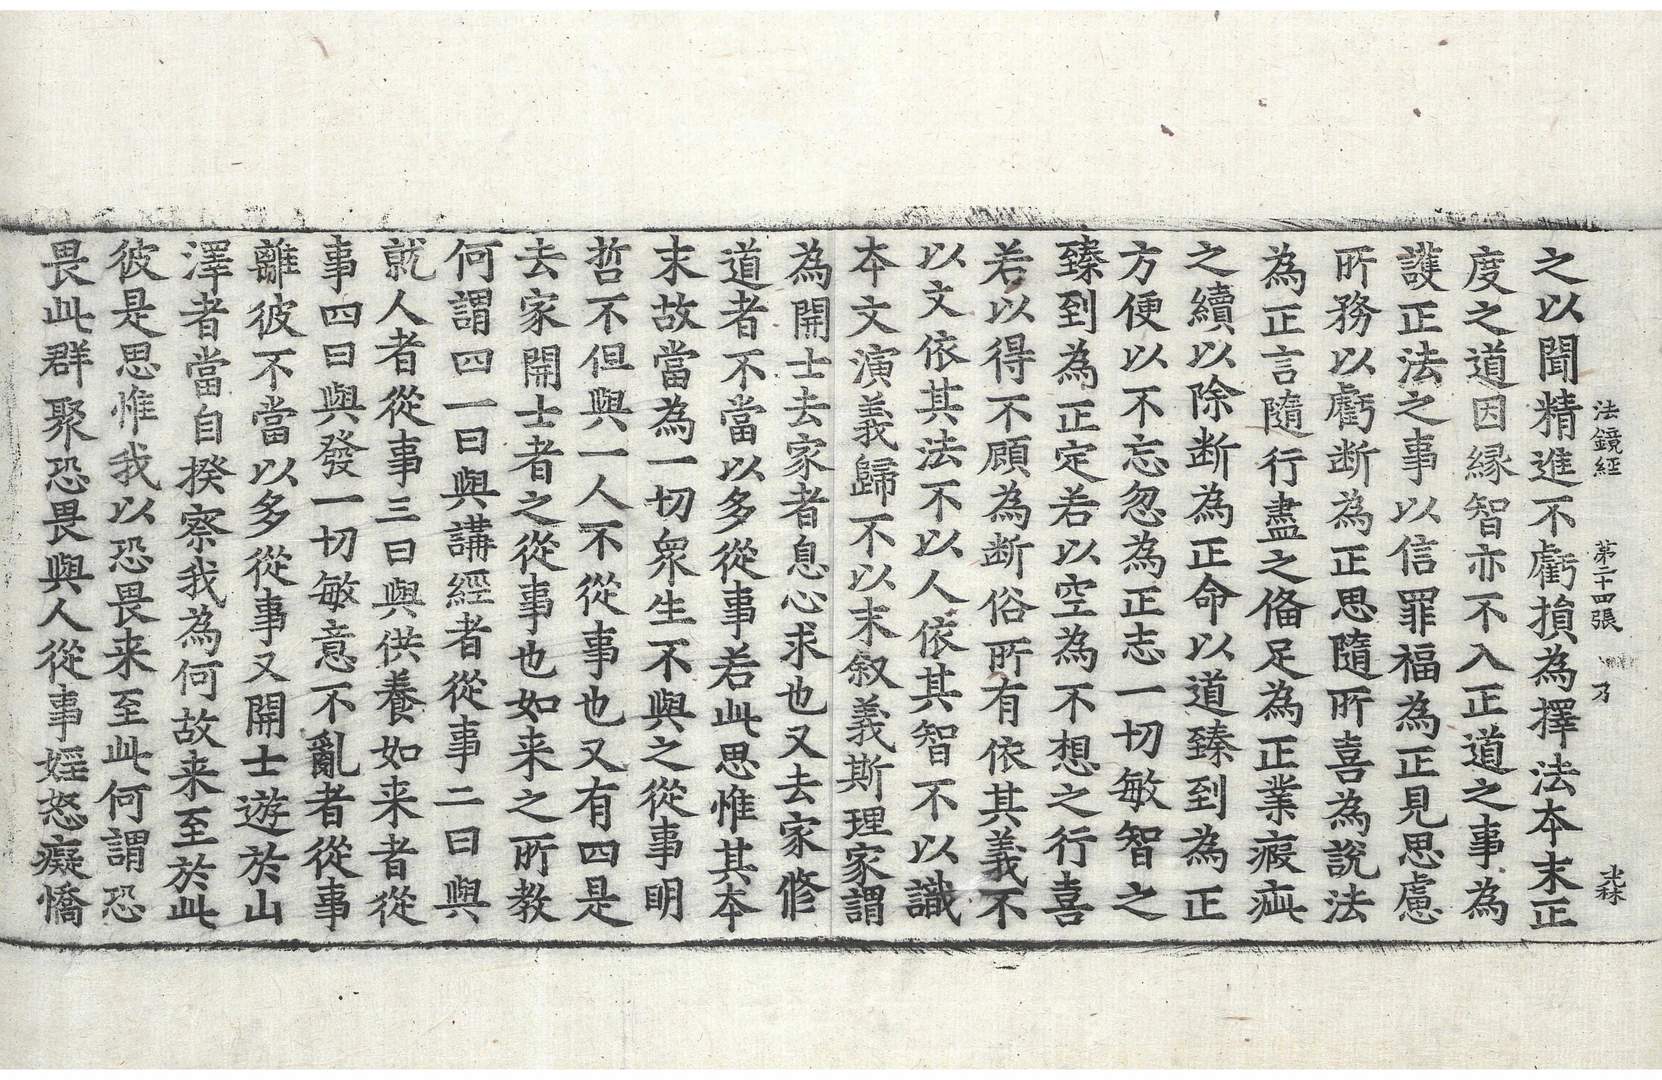 法鏡經 第二十四張 乃
之以聞精進不虧損為擇法本末正
度之道因緣智亦不入正道之事為
護正法之事以信罪福為正見思慮
所務以虧断為正思隨所喜為說法
為正言隨行盡之俻足為正業瘕疵
之續以除断為正命以道臻到為正
方便以不忘忽為正志一切敏智之
臻到為正定若以空為不想之行喜
若以得不願為断俗所有依其義不
以文依其法不以人依其智不以識
本文演義歸不以末叙義斯理家謂
為開士去家者息心求也又去家修
道者不當以多從事若此思惟其本
末故當為一切衆生不與之從事明
哲不但與一人不從事也又有四是
去家開士者之從事也如来之所教
何謂四一曰與講經者從事二曰與
就人者從事三曰與供養如来者從
事四曰與發一切敏意不亂者從事
離彼不當以多從事又開士遊於山
澤者當自揆察我為何故来至於此
彼是思惟我以恐畏来至此何謂恐
畏此群聚恐畏與人從事婬怒癡憍